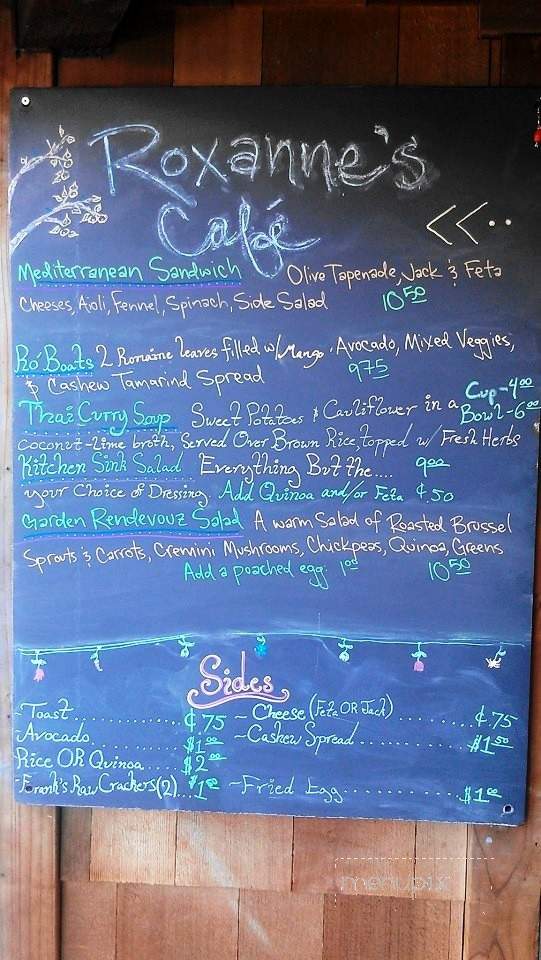 Roxanne's
Café
<<··
Mediterranean Sandwich Olive Tapenade, Jack & Feta
Cheeses, Aioli, Fennel, Spinach, Side Salad 10 50
Ro' Boats 2 Romaine leaves filled w/ Mango, Avocado, Mixed Veggies,
& Cashew Tamarind Spread 9 75
Cup - 4 00
Thai Curry Soup Sweet Potatoes & Cauliflower in a Bowl - 6 00
Coconut-lime broth, Served Over Brown Rice, topped w/ Fresh Herbs
Kitchen Sink Salad Everything But the.... 9 00
your Choice of Dressing. Add Quinoa and/or Feta ¢.50
Garden Rendevouz Salad A warm Salad of Roasted Brussel
Sprouts & Carrots, Cremini Mushrooms, Chickpeas, Quinoa, Greens
Add a poached egg: 1 00 10 50
Sides
~Toast.......... ¢.75 ~ Cheese (Feta OR Jack)......... ¢.75
Avocado.......... $1 00 ~Cashew Spread.......... $1 50
Rice OR Quinoa...... $2 00
~Frank's Raw Crackers (2)... $1 00 ~Fried Egg.......... $1 00
menupix